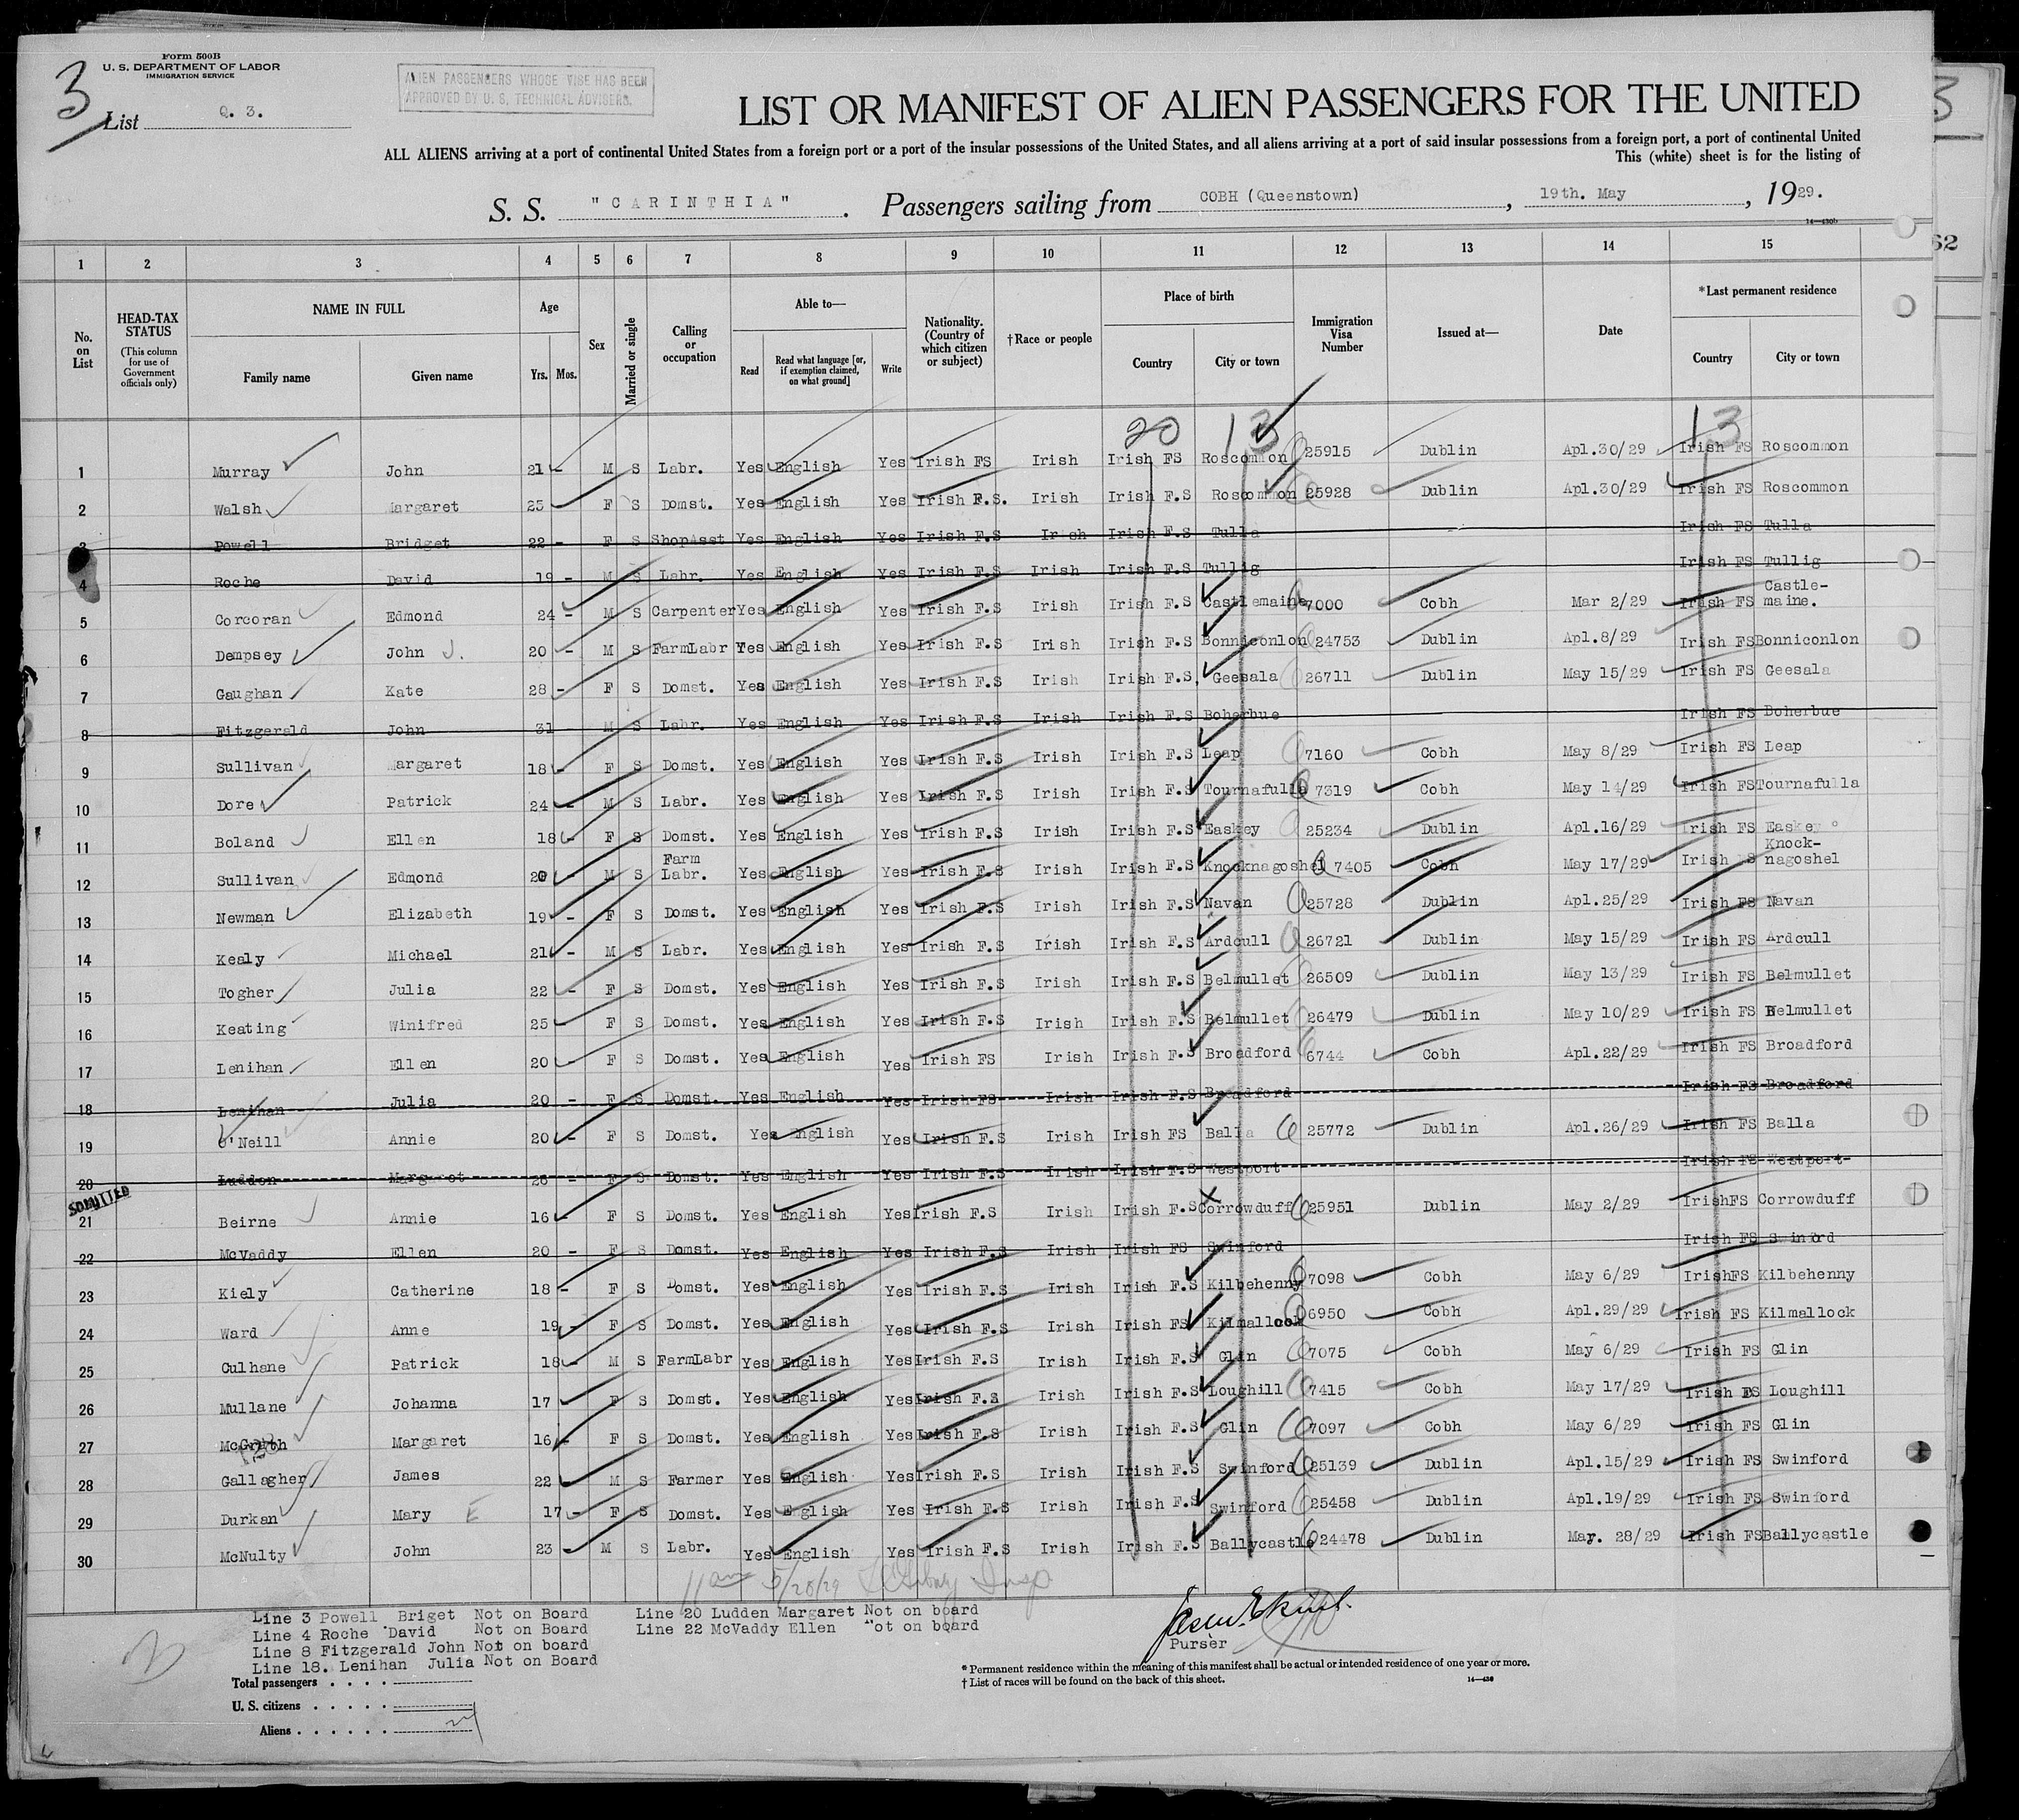 3
Form 500B
U. S. DEPARTMENT OF LABOR
IMMIGRATION SERVICE
List Q. 3.
ALIEN PASSENGERS WHOSE VISE HAS BEEN
APPROVED BY U. S. TECHNICAL ADVISERS.
LIST OR MANIFEST OF ALIEN PASSENGERS FOR THE UNITED
ALL ALIENS arriving at a port of continental United States from a foreign port or a port of the insular possessions of the United States, and all aliens arriving at a port of said insular possessions from a foreign port, a port of continental United
This (white) sheet is for the listing of
S. S. "CARINTHIA". Passengers sailing from COBH (Queenstown), 19th. May, 1929.
14—430b
1 2 3 4 5 6 7 8 9 10 11 12 13 14 15
No. on List
HEAD-TAX STATUS
(This column for use of Government officials only)
NAME IN FULL
Family name Given name
Age
Yrs. Mos.
Sex
Married or single
Calling or occupation
Able to—
Read
Read what language [or, if exemption claimed, on what ground]
Write
Nationality. (Country of which citizen or subject)
†Race or people
Place of birth
Country City or town
Immigration Visa Number
Issued at—
Date
*Last permanent residence
Country City or town
20 13 13
1 Murray John 21 - M S Labr. Yes English Yes Irish FS Irish Irish FS Roscommon 25915 Dublin Apl.30/29 Irish FS Roscommon
2 Walsh Margaret 25 F S Domst. Yes English Yes Irish F.S. Irish Irish F.S Roscommon 25928 Dublin Apl.30/29 Irish FS Roscommon
3 Powell Bridget 22 - F S ShopAsst Yes English Yes Irish F.S Irish Irish F.S Tulla Irish FS Tulla
4 Roche David 19 - M S Labr. Yes English Yes Irish F.S Irish Irish F.S Tullig Irish FS Tullig
5 Corcoran Edmond 24 - M S Carpenter Yes English Yes Irish F.S Irish Irish F.S Castlemaine 7000 Cobh Mar 2/29 Irish FS Castle-maine.
6 Dempsey John J. 20 - M S FarmLabr Yes English Yes Irish F.S Irish Irish F.S Bonniconlon 24753 Dublin Apl.8/29 Irish FS Bonniconlon
7 Gaughan Kate 28 - F S Domst. Yes English Yes Irish F.S Irish Irish F.S, Geesala 26711 Dublin May 15/29 Irish FS Geesala
8 Fitzgerald John 31 M S Labr. Yes English Yes Irish F.S Irish Irish F.S Boherbue Irish FS Boherbue
9 Sullivan Margaret 18 - F S Domst. Yes English Yes Irish F.S Irish Irish F.S Leap 7160 Cobh May 8/29 Irish FS Leap
10 Dore Patrick 24 - M S Labr. Yes English Yes Irish F.S Irish Irish F.S Tournafulla 7319 Cobh May 14/29 Irish FS Tournafulla
11 Boland Ellen 18 - F S Domst. Yes English Yes Irish F.S Irish Irish F.S Easkey 25234 Dublin Apl.16/29 Irish FS Easkey
12 Sullivan Edmond 20 - M S Farm Labr. Yes English Yes Irish F.S Irish Irish F.S Knocknagoshel 7405 Cobh May 17/29 Irish FS Knock-nagoshel
13 Newman Elizabeth 19 - F S Domst. Yes English Yes Irish F.S Irish Irish F.S Navan 25728 Dublin Apl.25/29 Irish FS Navan
14 Kealy Michael 21 - M S Labr. Yes English Yes Irish F.S Irish Irish F.S Ardcull 26721 Dublin May 15/29 Irish FS Ardcull
15 Togher Julia 22 - F S Domst. Yes English Yes Irish F.S Irish Irish F.S Belmullet 26509 Dublin May 13/29 Irish FS Belmullet
16 Keating Winifred 25 - F S Domst. Yes English Yes Irish F.S Irish Irish F.S Belmullet 26479 Dublin May 10/29 Irish FS Belmullet
17 Lenihan Ellen 20 - F S Domst. Yes English Yes Irish FS Irish Irish F.S Broadford 6744 Cobh Apl.22/29 Irish FS Broadford
18 Lenihan Julia 20 - F S Domst. Yes English Yes Irish FS Irish Irish F.S Broadford Irish FS Broadford
19 O'Neill Annie 20 - F S Domst. Yes English Yes Irish F.S Irish Irish FS Balla 25772 Dublin Apl.26/29 Irish FS Balla
20 Ludden Margaret 26 - F S Domst. Yes English Yes Irish F.S Irish Irish F.S Westport Irish FS Westport
ADMITTED
21 Beirne Annie 16 - F S Domst. Yes English Yes Irish F.S Irish Irish F.S Corrowduff 25951 Dublin May 2/29 Irish FS Corrowduff
22 McVaddy Ellen 20 - F S Domst. Yes English Yes Irish F.S Irish Irish FS Swinford Irish FS Swinford
23 Kiely Catherine 18 - F S Domst. Yes English Yes Irish F.S Irish Irish F.S Kilbehenny 7098 Cobh May 6/29 Irish FS Kilbehenny
24 Ward Anne 19 - F S Domst. Yes English Yes Irish F.S Irish Irish FS Kilmallock 6950 Cobh Apl.29/29 Irish FS Kilmallock
25 Culhane Patrick 18 - M S FarmLabr Yes English Yes Irish F.S Irish Irish F.S Glin 7075 Cobh May 6/29 Irish FS Glin
26 Mullane Johanna 17 F S Domst. Yes English Yes Irish F.S Irish Irish F.S Loughill 7415 Cobh May 17/29 Irish FS Loughill
27 McGrath Margaret 16 - F S Domst. Yes English Yes Irish F.S Irish Irish F.S Glin 7097 Cobh May 6/29 Irish FS Glin
28 Gallagher James 22 M S Farmer Yes English Yes Irish F.S Irish Irish F.S Swinford 25139 Dublin Apl.15/29 Irish FS Swinford
29 Durkan Mary E 17 - F S Domst. Yes English Yes Irish F.S Irish Irish F.S Swinford 25458 Dublin Apl.19/29 Irish FS Swinford
30 McNulty John 23 M S Labr. Yes English Yes Irish F.S Irish Irish F.S Ballycastle 24478 Dublin Mar. 28/29 Irish FS Ballycastle
11am 5/28/29
Line 3 Powell Briget Not on Board
Line 4 Roche David Not on Board
Line 8 Fitzgerald John Not on board
Line 18. Lenihan Julia Not on Board
Line 20 Ludden Margaret Not on board
Line 22 McVaddy Ellen Not on board
Purser
Total passengers . . . .
U. S. citizens . . . . .
Aliens . . . . . .
* Permanent residence within the meaning of this manifest shall be actual or intended residence of one year or more.
† List of races will be found on the back of this sheet.
14—430